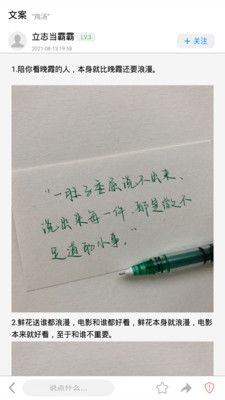 文案 "鸡汤"
立志当霸霸 LV.3
2021-08-13 19:58
+ 关注
1.陪你看晚霞的人，本身就比晚霞还要浪漫。
"一肚子委屈说不出来，
说出来每一件，都是微不
足道的小事。"
2.鲜花送谁都浪漫，电影和谁都好看，鲜花本身就浪漫，电影
本来就好看，至于和谁不重要。
说点什么...